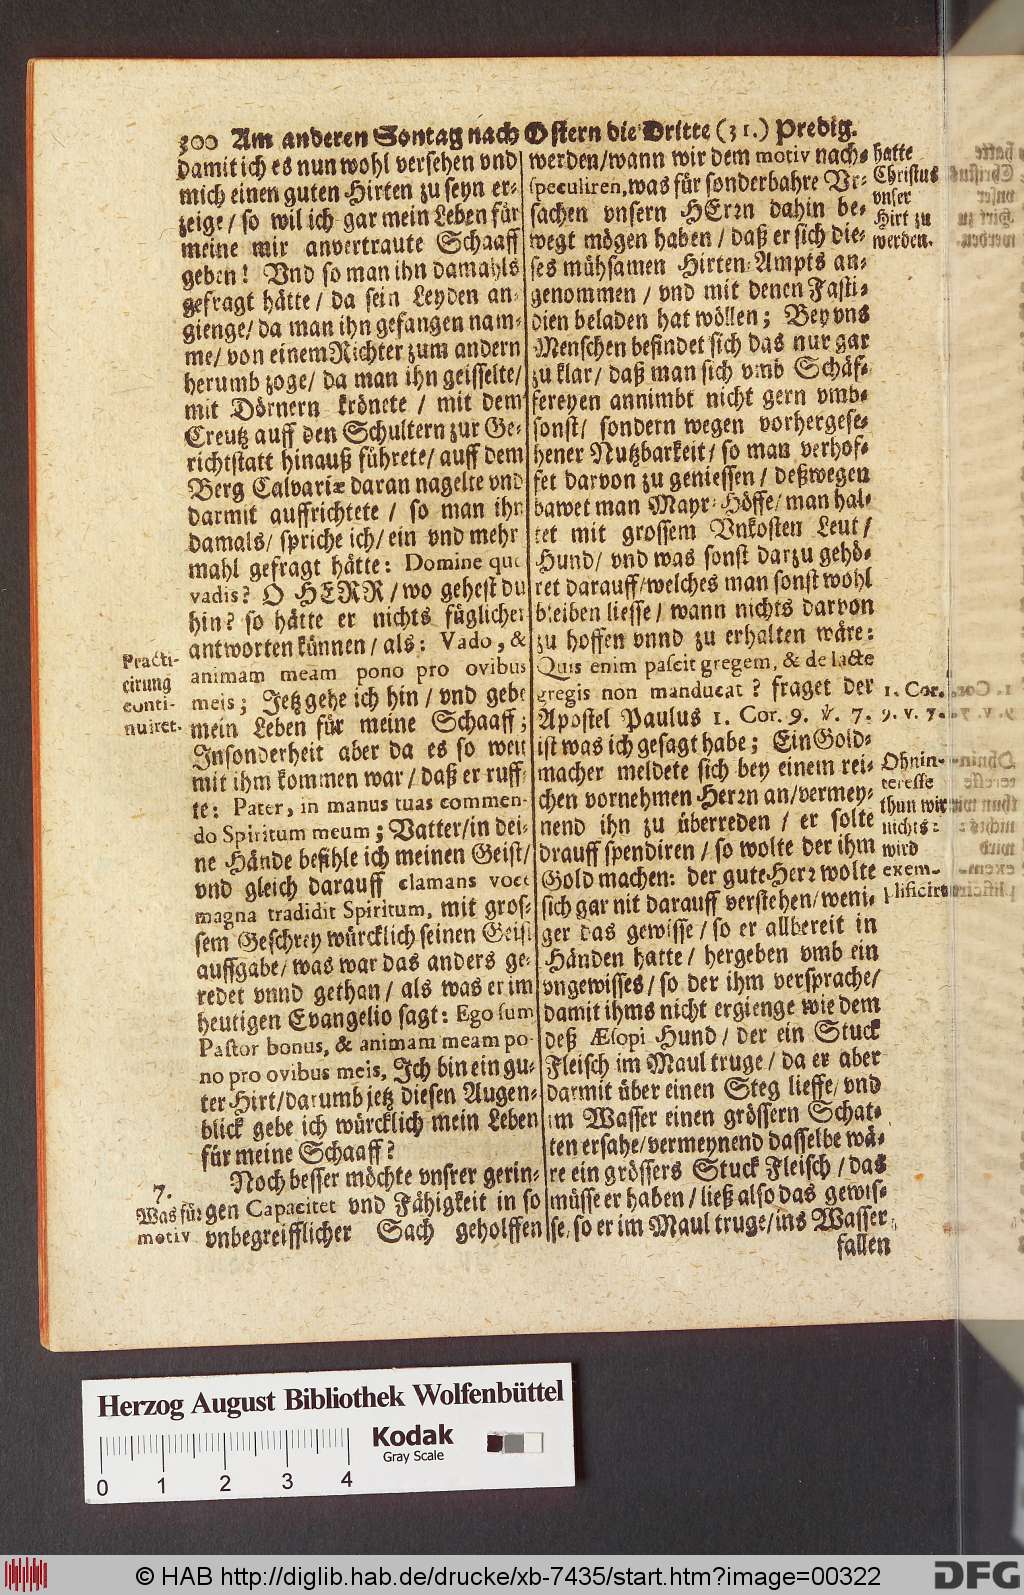 300 Am anderen Sontag nach Ostern die Dritte (31.) Predig.
damit ich es nun wohl versehen vnd
mich einen guten Hirten zu seyn er-
zeige/ so wil ich gar mein Leben für
meine mir anvertraute Schaaff
geben! Vnd so man ihn damahls
gefragt hätte/ da sein Leyden an-
gienge/ da man ihn gefangen nam-
me/ von einem Richter zum andern
herumb zoge/ da man ihn geisselte/
mit Dörnern krönete / mit dem
Creutz auff den Schultern zur Ge-
richtstatt hinauß führete/ auff dem
Berg Calvariæ daran nagelte vnd
darmit auffrichtete / so man ihn
damals/ spriche ich/ ein vnd mehr
mahl gefragt hätte: Domine quo
vadis? O HERR/ wo gehest du
hin? so hätte er nichts füglicher
antworten künnen/ als: Vado, &
animam meam pono pro ovibus
meis; Jetz gehe ich hin/ vnd gebe
mein Leben für meine Schaaff;
Insonderheit aber da es so weit
mit ihm kommen war/ daß er ruff-
te: Pater, in manus tuas commen-
do Spiritum meum; Vatter/ in dei-
ne Hände befihle ich meinen Geist/
vnd gleich darauff clamans voce
magna tradidit Spiritum, mit gros-
sem Geschrey würcklich seinen Geist
auffgabe/ was war das anders ge-
redet vnnd gethan/ als was er im
heutigen Evangelio sagt: Ego sum
Pastor bonus, & animam meam po-
no pro ovibus meis, Ich bin ein gu-
ter Hirt/ darumb jetz diesen Augen-
blick gebe ich würcklich mein Leben
für meine Schaaff?
Noch besser möchte vnsrer gerin-
gen Capacitet vnd Fähigkeit in so
vnbegreifflicher Sach geholffen
Practi-
cirung
conti-
nuiret.
7.
Was für
motiv
werden/ wann wir dem motiv nach-
speculiren, was für sonderbahre Vr-
sachen vnsern HErrn dahin be-
wegt mögen haben / daß er sich die-
ses mühsamen Hirten-Ampts an-
genommen / vnd mit denen Fasti-
dien beladen hat wöllen; Bey vns
Menschen befindet sich das nur gar
zu klar/ daß man sich vmb Schäf-
fereyen annimbt nicht gern vmb-
sonst/ sondern wegen vorhergese-
hener Nutzbarkeit/ so man verhof-
fet darvon zu geniessen / deßwegen
bawet man Mayr-Höffe/ man hal-
tet mit grossem Vnkosten Leut/
Hund/ vnd was sonst darzu gehö-
ret darauff/ welches man sonst wohl
bleiben liesse/ wann nichts darvon
zu hoffen vnnd zu erhalten wäre:
Quis enim pascit gregem, & de lacte
gregis non manducat? fraget der
Apostel Paulus 1. Cor. 9. v. 7.
ist was ich gesagt habe; Ein Gold-
macher meldete sich bey einem rei-
chen vornehmen Herrn an/ vermey-
nend ihn zu überreden / er solte
drauff spendiren/ so wolte der ihm
Gold machen: der gute Herr wolte
sich gar nit darauff verstehen/ weni-
ger das gewisse/ so er allbereit in
Händen hatte/ hergeben vmb ein
vngewisses/ so der ihm versprache/
damit ihms nicht ergienge wie dem
deß Æsopi Hund/ der ein Stuck
Fleisch im Maul truge/ da er aber
darmit über einen Steg lieffe/ vnd
im Wasser einen grössern Schat-
ten ersahe/ vermeynend dasselbe wä-
re ein grössers Stuck Fleisch/ das
müsse er haben/ ließ also das gewis-
se, so er im Maul truge/ ins Wasser
fallen
hatte
Christus
vnser
Hirt zu
werden.
1. Cor.
9. v. 7.
Ohnin-
teresse
thun wir
nichts:
wird
exem-
plificirt
Herzog August Bibliothek Wolfenbüttel
Kodak
Gray Scale
0 1 2 3 4
© HAB http://diglib.hab.de/drucke/xb-7435/start.htm?image=00322
DFG